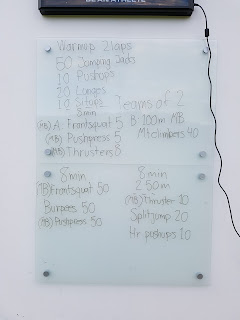 BE AN ATHLETE
Warmup 2laps
50 Jumping Jacks
10 Pushups
10 Lunges
10 Situps Teams of 2
8min
(MB) A: Frontsquat 5 B 100m MB
(MB) Pushpress 5 Mtclimbers 40
(MB) Thrusters 8
8min
(MB) Frontsquat 50
Burpees 50
(MB) Pushpress 50
8 min
250m
(MB) Thruster 10
Splitjump 20
Hr pushups 10